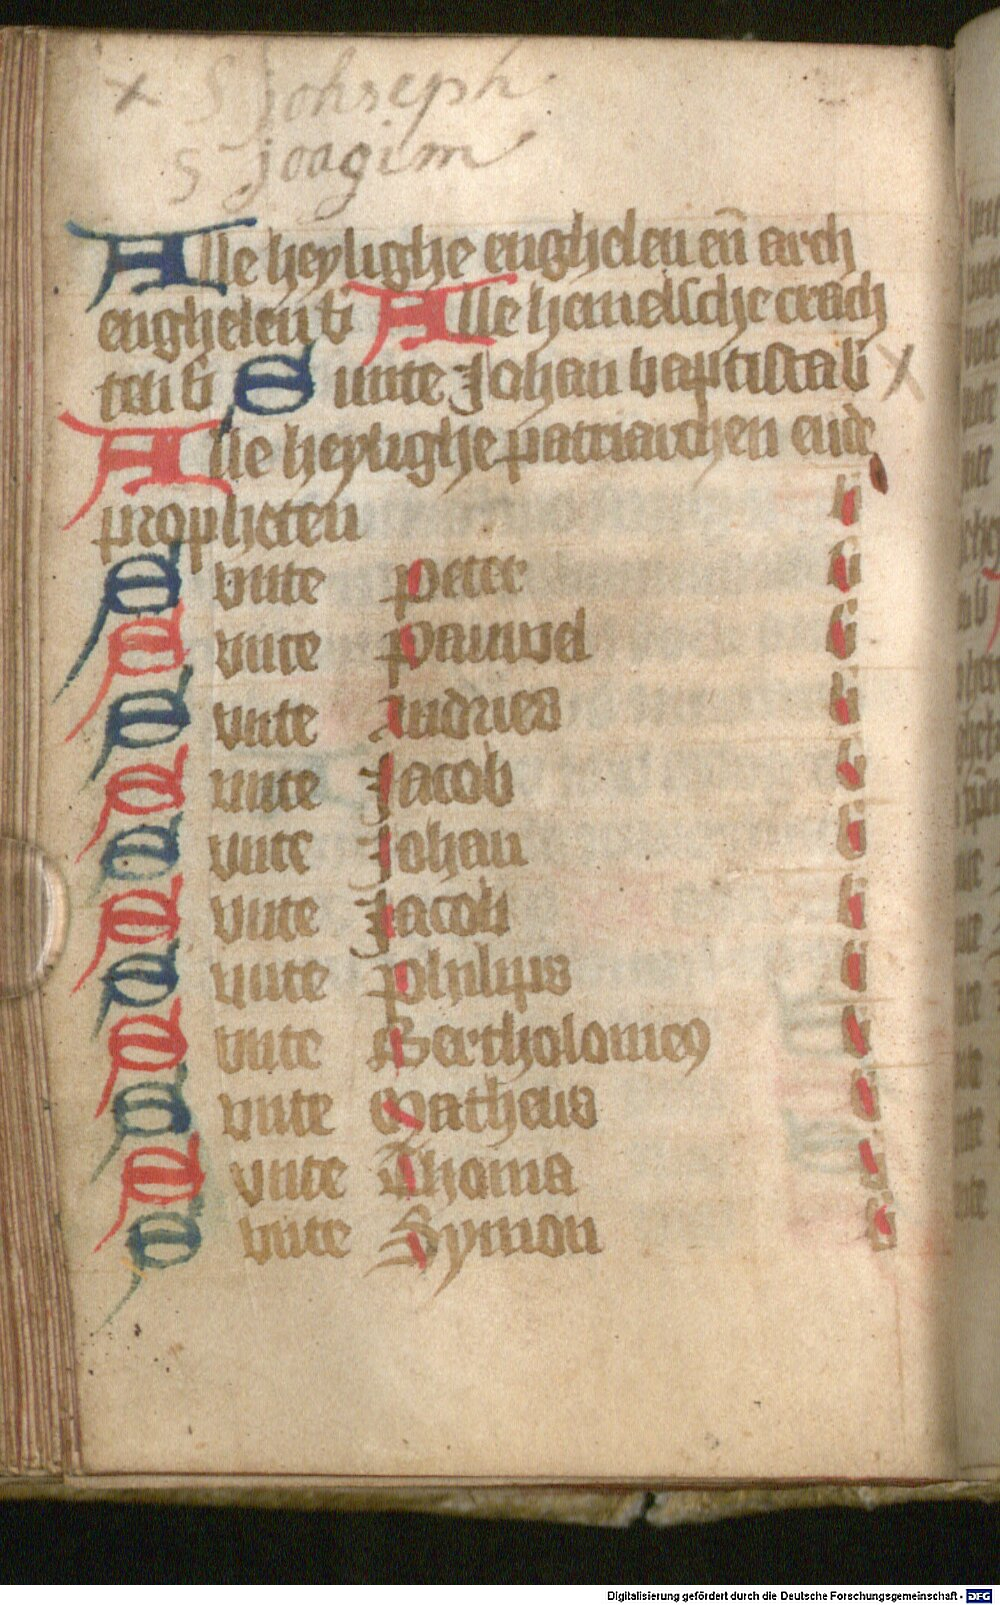 x S Johseph
S joagim
Alle heylighe enghelen en̄ arch
enghelen b Alle hemelsche crach
ten b Sunte Johan baptista b x
Alle heylighe patriarchen ende
propheten b
Sunte peter b
Sunte pauwel b
Sunte Andries b
Sunte Jacob b
Sunte Johan b
Sunte Jacob b
Sunte philips b
Sunte Bertholomeꝰ b
Sunte Matheus b
Sunte Thoma b
Sunte Symon b
Digitalisierung gefördert durch die Deutsche Forschungsgemeinschaft - DFG